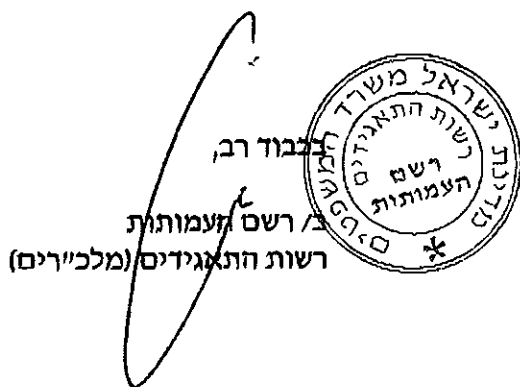 בכבוד רב,
ב/ רשם העמותות
רשות התאגידים (מלכ״רים)
מדינת ישראל משרד המשפטים
רשות התאגידים
רשם
העמותות